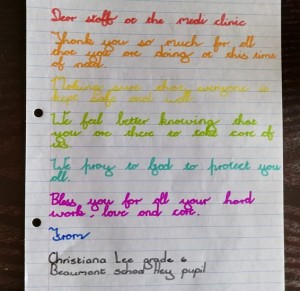 Dear staff at the medi clinic
Thank you so much for all
that you are doing at this time
of need.
Making sure that everyone is
kept safe and well.
We feel better knowing that
you are there to take care of
us.
We pray to God to protect you
all.
Bless you for all your hard
work, love and care.
From
Christiana Lee grade 6
Beaumont school Hey pupil